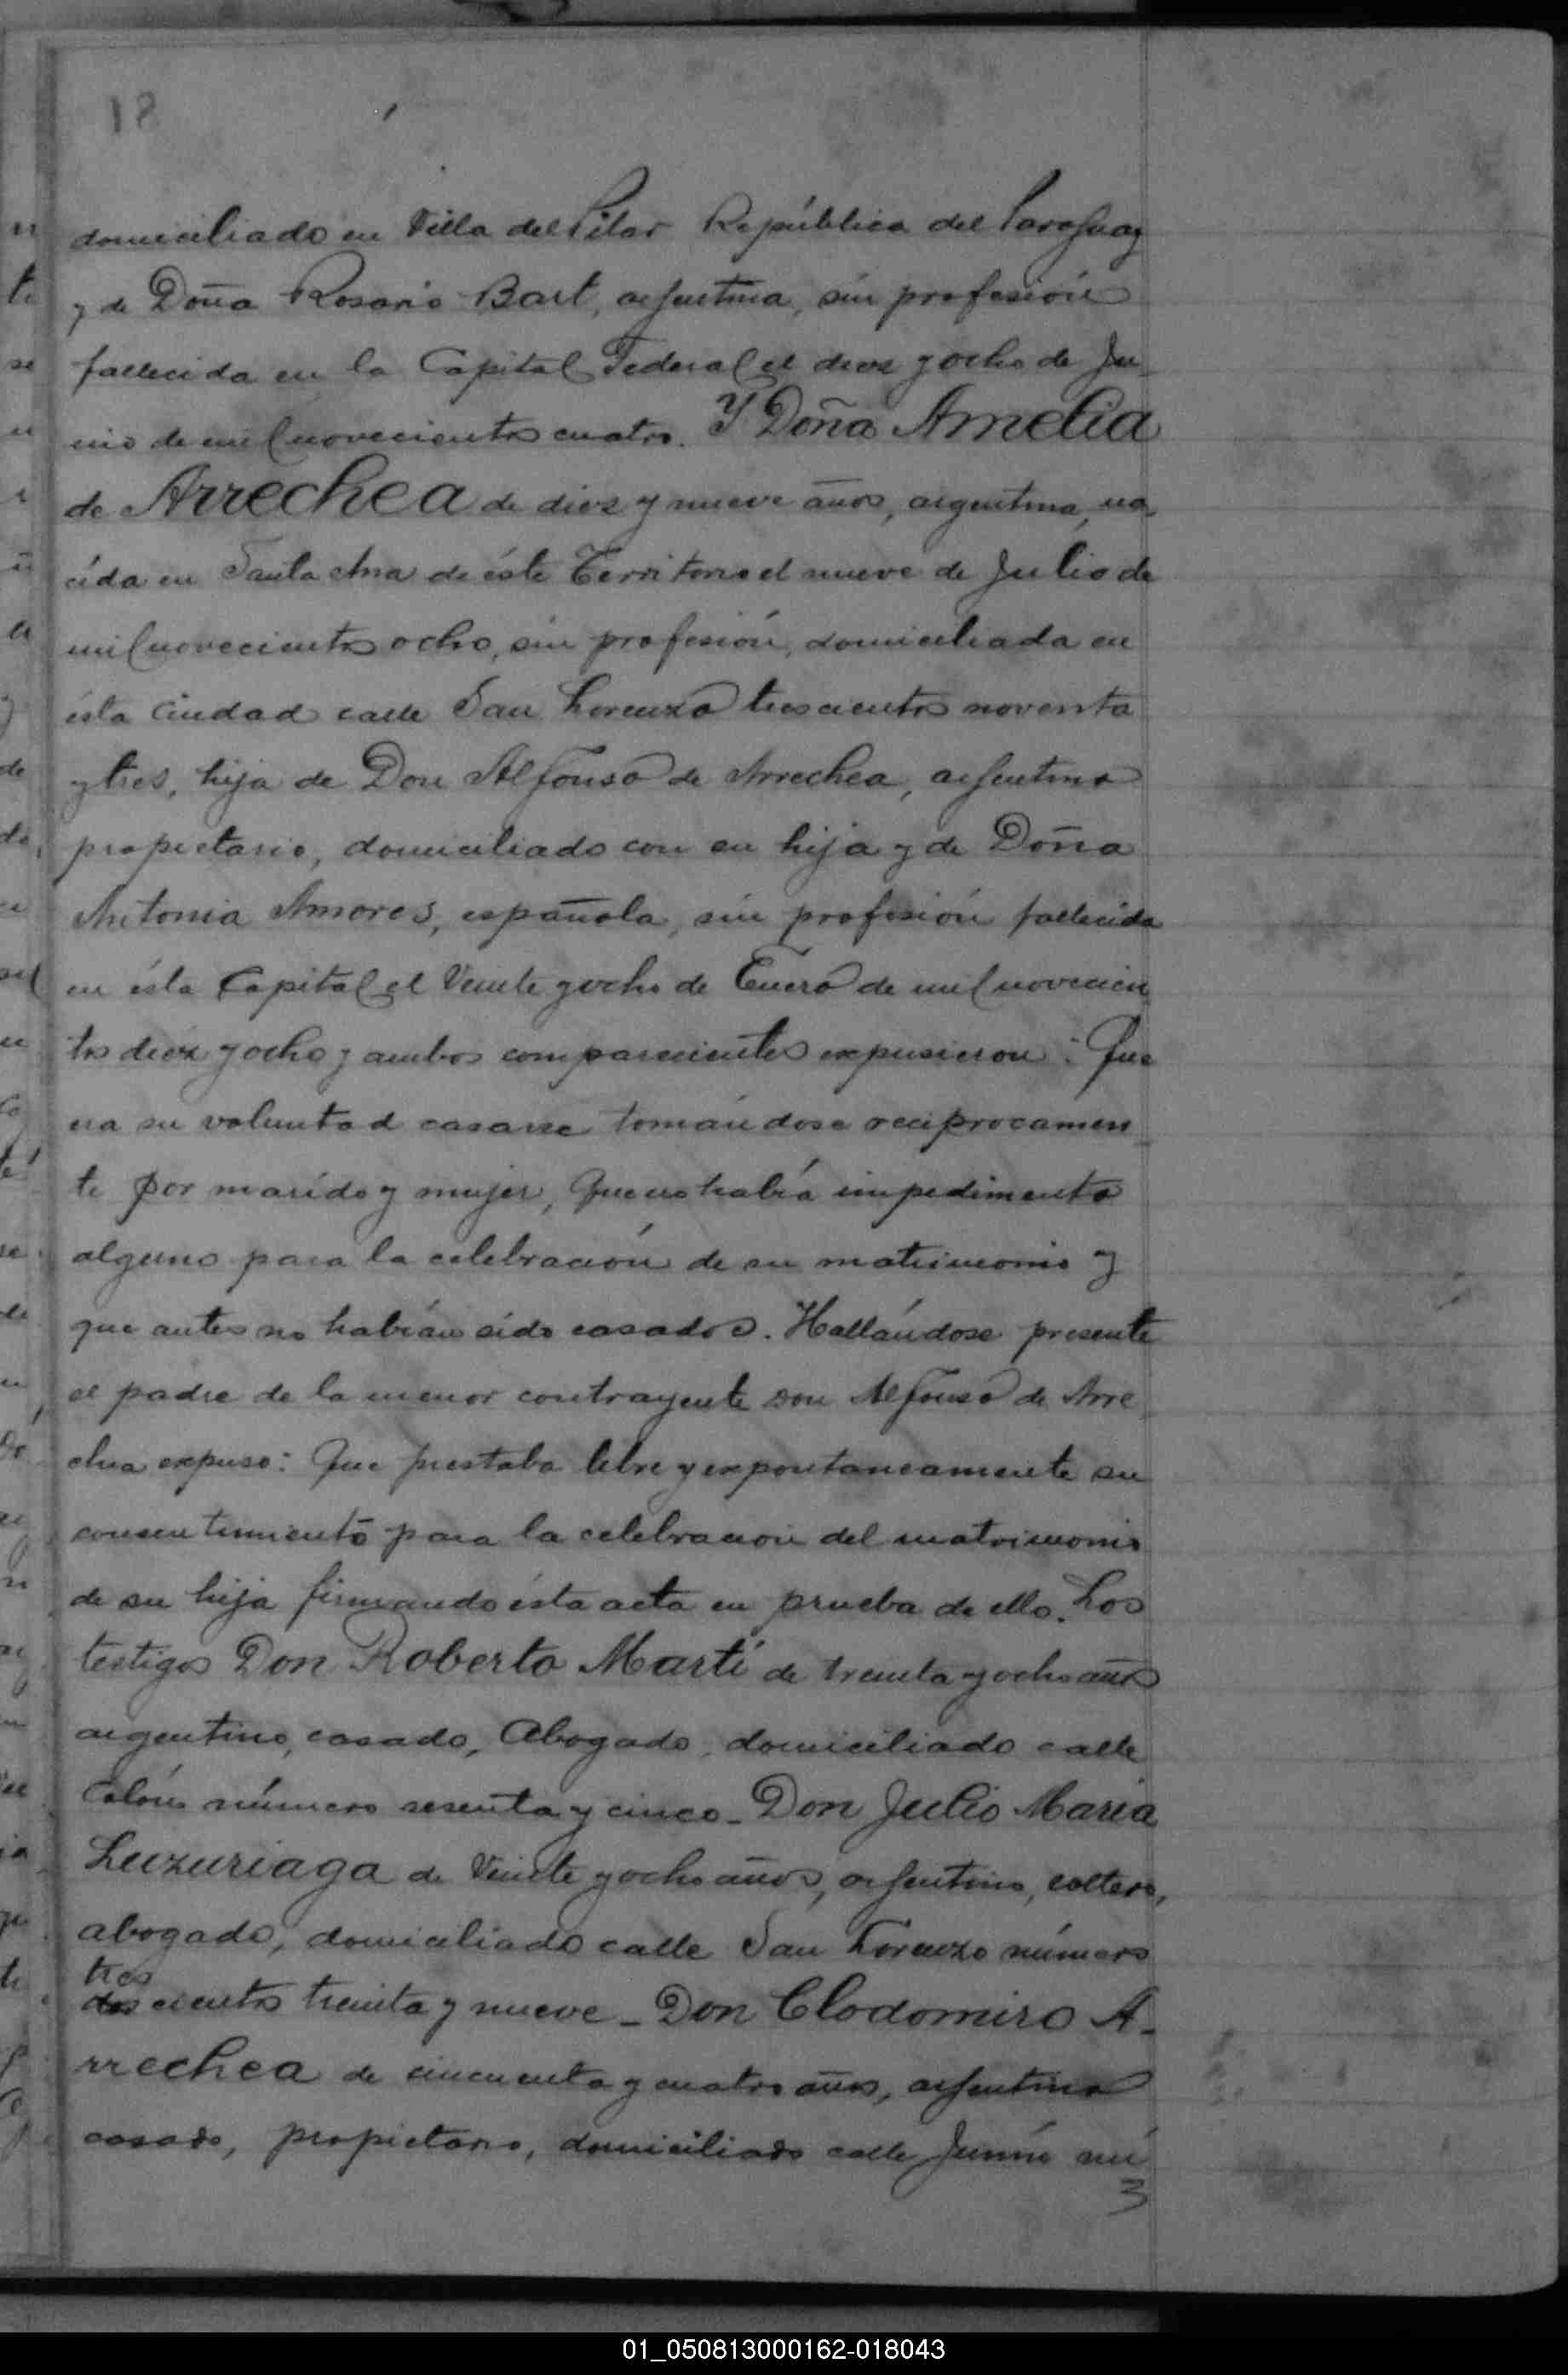 18
domiciliado en Villa del Pilar República del Paraguay
y de Doña Rosario Bart, argentina, sin profesión
fallecida en la Capital Federal el diez y ocho de Ju_
nio de mil novecientos cuatro. Y Doña Amelia
de Arrechea de diez y nueve años, argentina, na_
cida en Santa Ana de éste Territorio el nueve de Julio de
mil novecientos ocho, sin profesión, domiciliada en
ésta Ciudad calle San Lorenzo trescientos noventa
y tres, hija de Don Alfonso de Arrechea, argentino
propietario, domiciliado con su hija y de Doña
Antonia Amores, española, sin profesión fallecida
en ésta Capital el Veinte y ocho de Enero de mil novecien
tos diez y ocho y ambos comparecientes expusieron: Que
era su voluntad casarse tomándose reciprocamen_
te por marido y mujer, Que no había impedimento
alguno para la celebración de su matrimonio y
que antes no habían sido casados. Hallándose presente
el padre de la menor contrayente Don Alfonso de Arre
chea expuso: Que prestaba libre y expontaneamente su
consentimiento para la celebración del matrimonio
de su hija firmando ésta acta en prueba de ello. Los
testigos Don Roberto Martí de treinta y ocho años
argentino, casado, Abogado, domiciliado calle
Colón número sesenta y cinco_ Don Julio María
Luzuriaga de Veinte y ocho años, argentino, soltero,
abogado, domiciliado calle San Lorenzo número
tres
dos cientos treinta y nueve_ Don Clodomiro A_
rrechea de cincuenta y cuatro años, argentino
casado, propietario, domiciliado calle Junín nú
3
01_050813000162-018043